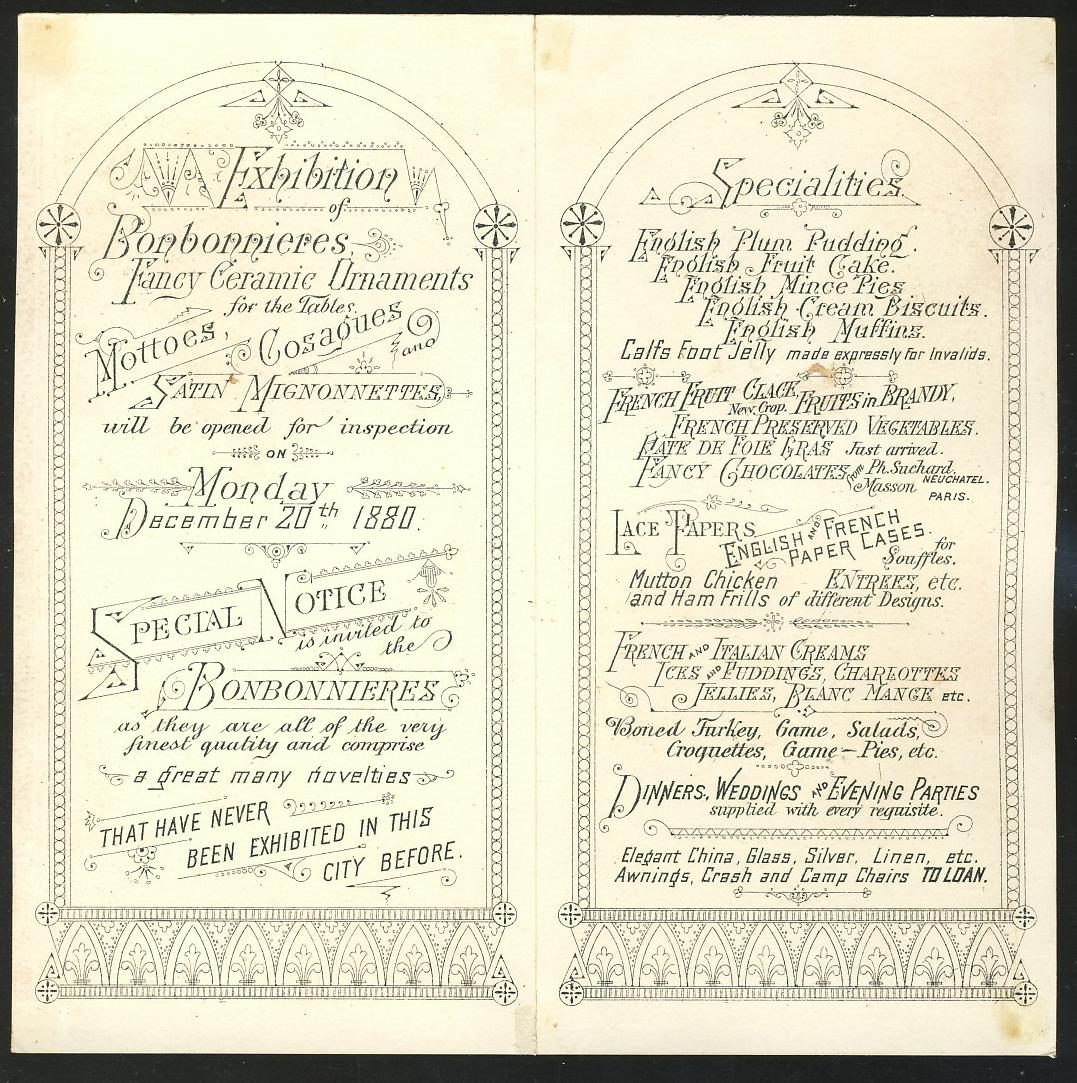 Exhibition
of
Bonbonnieres,
Fancy Ceramic Ornaments
for the Tables.
Mottoes, Cosaques and
Satin Mignonnettes,
will be opened for inspection
ON
Monday
December 20th 1880.
Special Notice
is invited to
the
Bonbonnieres
as they are all of the very
finest quality and comprise
a great many novelties
THAT HAVE NEVER
BEEN EXHIBITED IN THIS
CITY BEFORE.
Specialities.
English Plum Pudding.
English Fruit Cake.
English Mince Pies
English Cream Biscuits.
English Muffins.
Calfs Foot Jelly made expressly for Invalids.
French Fruit Glace, New Crop. Fruits in Brandy,
French Preserved Vegetables.
Pate de Foie Gras Just arrived.
Fancy Chocolates from Ph. Suchard. NEUCHATEL.
Masson PARIS.
Lace Papers English and French
Paper Cases. for
Souffles.
Mutton Chicken Entrees, etc.
and Ham Frills of different Designs.
French and Italian Creams
Ices and Puddings, Charlottes
Jellies, Blanc Mange etc.
Boned Turkey, Game, Salads,
Croquettes, Game-Pies, etc.
Dinners, Weddings and Evening Parties
supplied with every requisite.
Elegant China, Glass, Silver, Linen, etc.
Awnings, Crash and Camp Chairs TO LOAN.